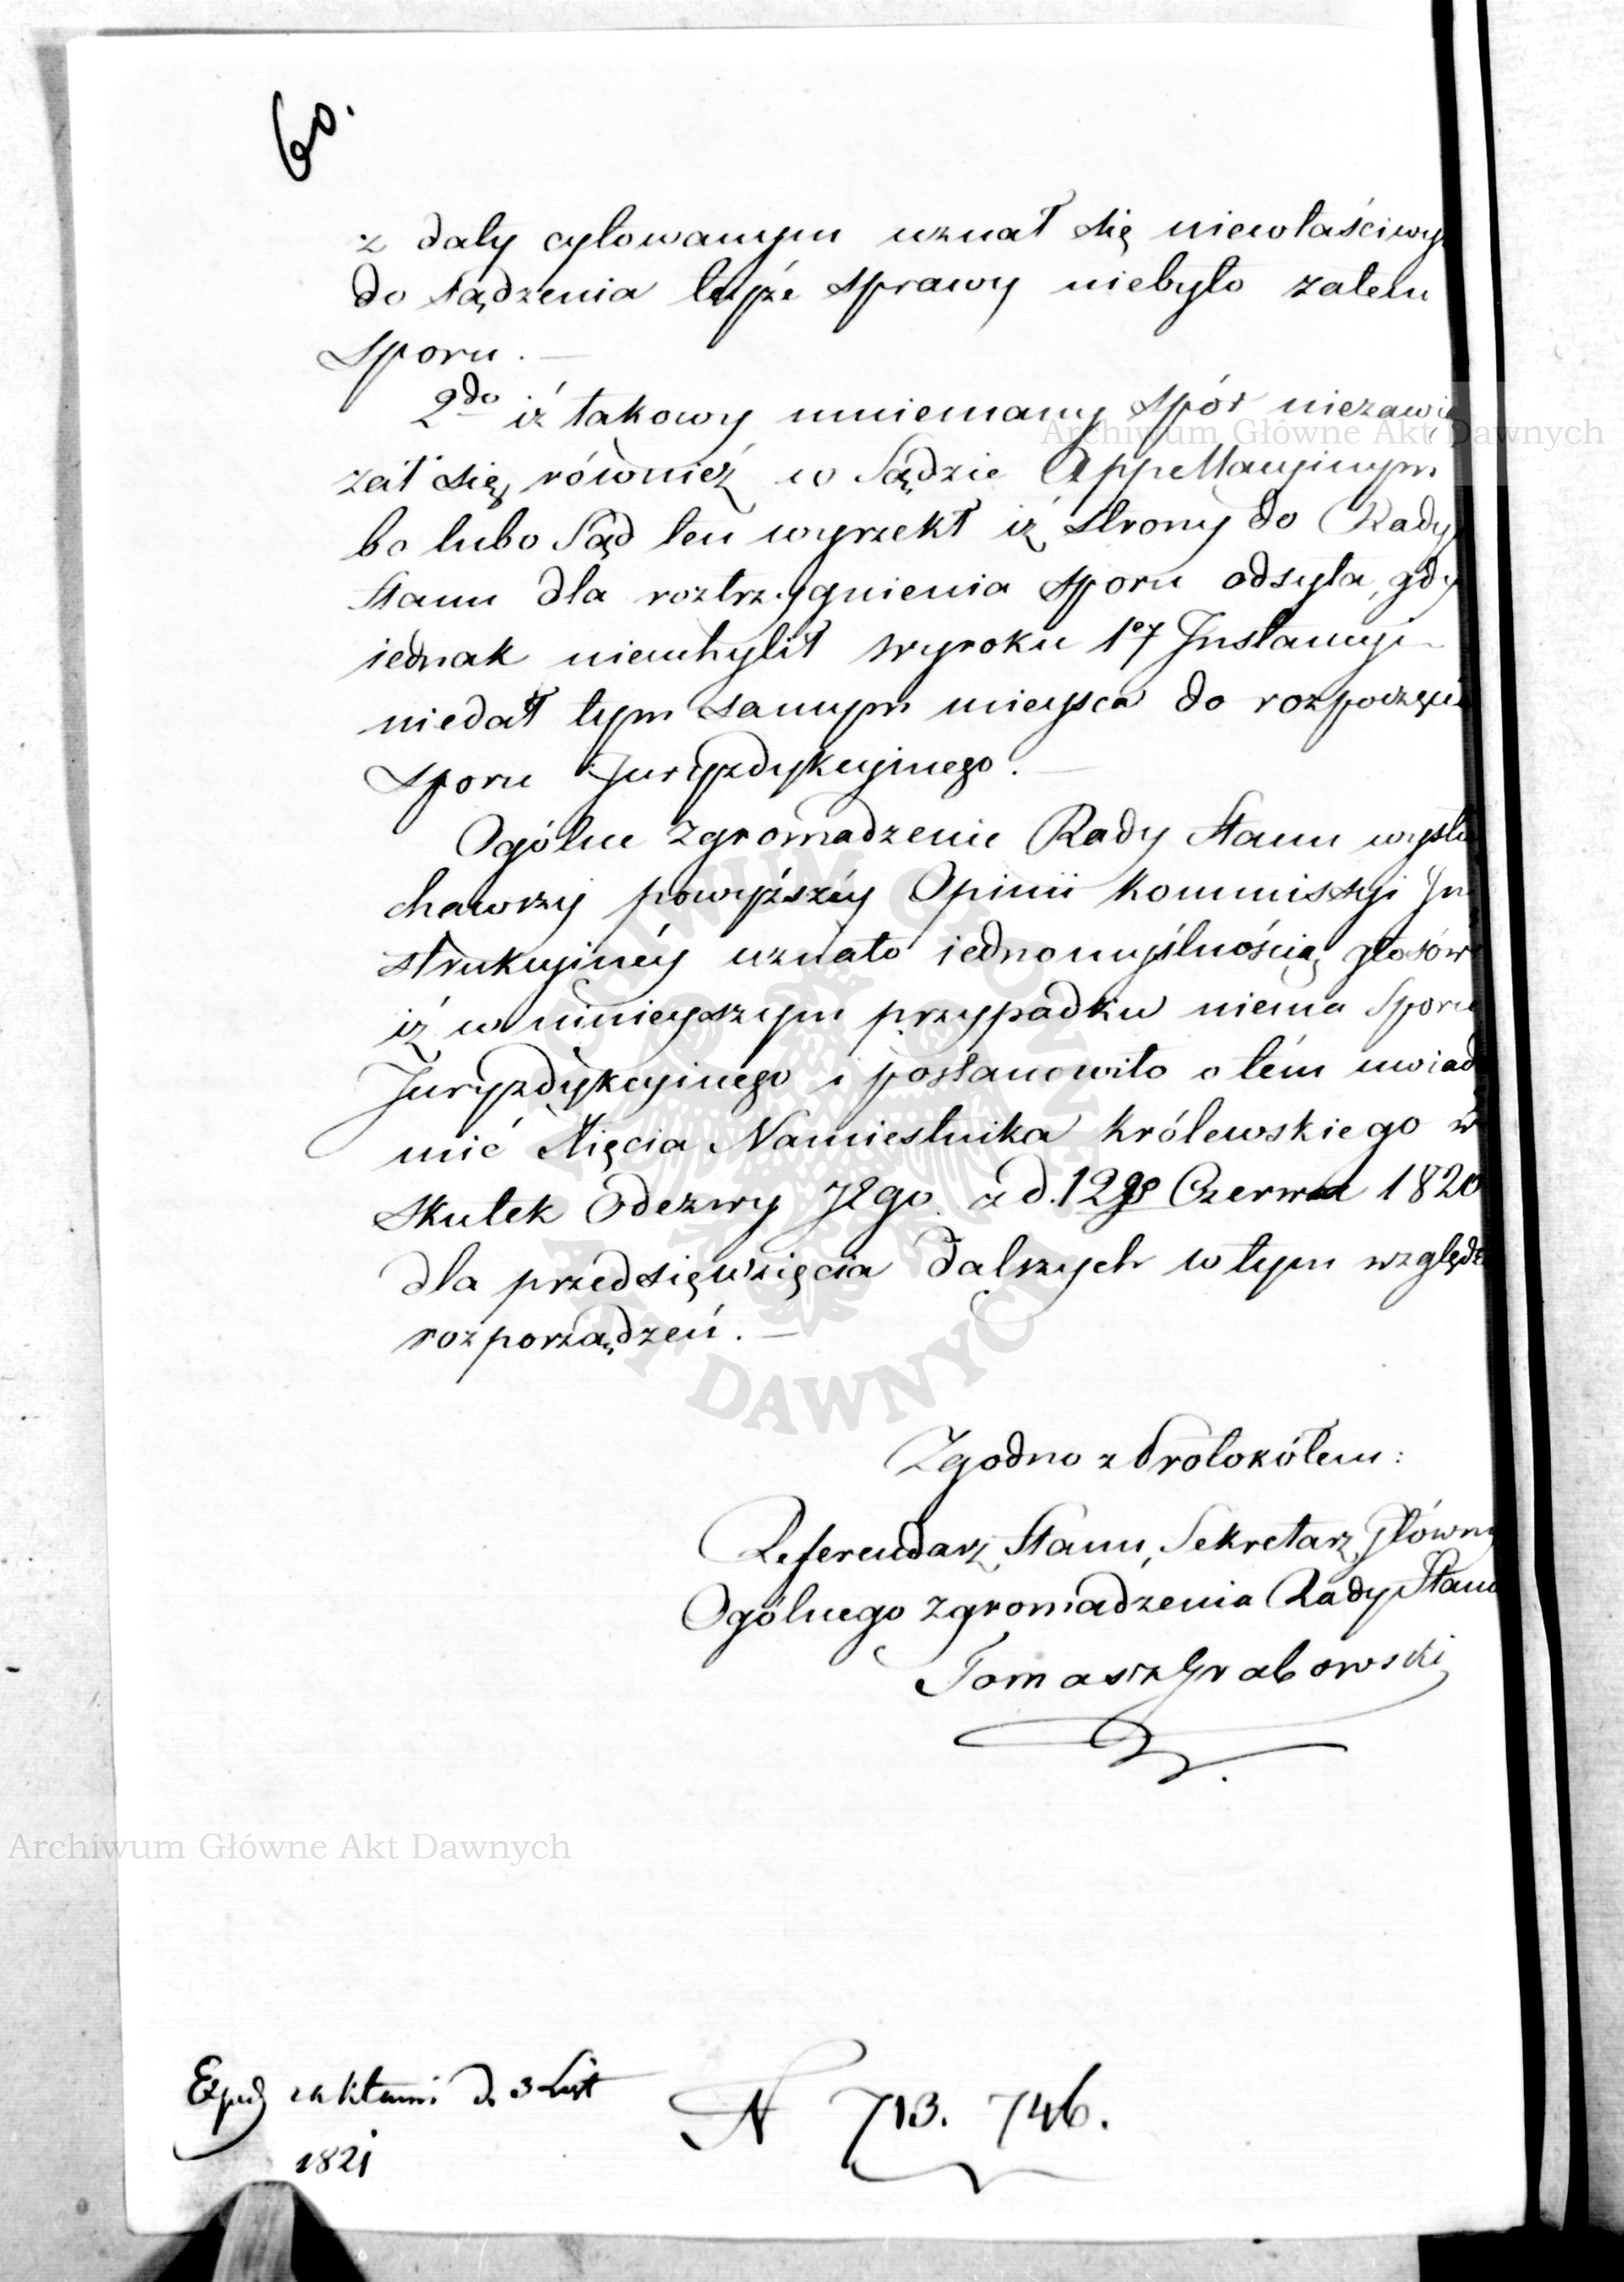 60.
z daty cytowanym uznał się niewłaściwy
do sądzenia teyże sprawy niebyło zatem
sporu. —
2do iż takowy mniemany spór niezawią
zał się również w Sądzie Appellacyinym
bo lubo Sąd ten wyrzekł iż strony do Rady
Stanu dla roztrzygnienia sporu odsyła, gdy
iednak nieuchylił wyroku 1ey Instancyi
niedał tym samym mieysca do rozpoczęcia
sporu Juryzdykcyinego. —
Ogólne Zgromadzenie Rady Stanu wysłu
chawszy powyższéy Opinii Kommissyi In
strukcyinéy uznało iednomyślnością głosów
iż w ninieyszym przypadku niema Sporu
Juryzdykcyinego i postanowiło o tém uwiado
mić Xięcia Namiestnika Królewskiego w
skutek Odezwy JEgo z d. 12go Czerwca 1820
dla przedsięwzięcia dalszych w tym względzie
rozporządzeń. —
Zgodno z Protokółem:
Referendarz Stanu, Sekretarz Główny
Ogólnego Zgromadzenia Rady Stanu
Tomasz Grabowski
d. 3 List
1821
N 713. 746.
Archiwum Główne Akt Dawnych
Archiwum Główne Akt Dawnych
ARCHIWUM GŁÓWNE AKT DAWNYCH